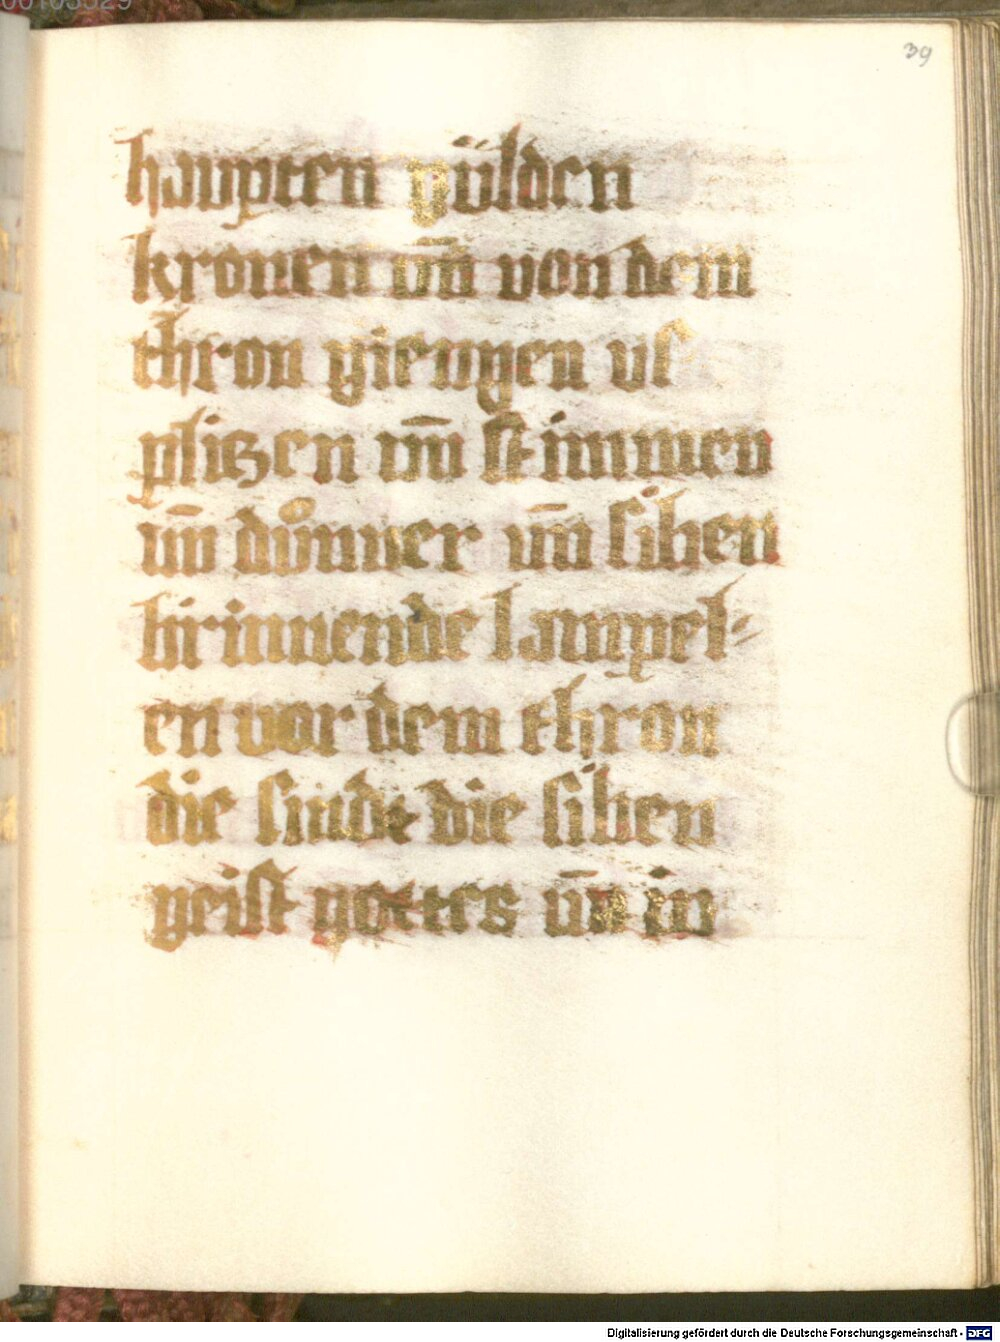 39
haupten gülden
kronen vn̄ von dem
thron giengen vſ
plitzen vn̄ ſtimmen
vn̄duͦnner vn̄ ſiben
brinnende lampel⸗
en vor dem thron
die ſindt die ſiben
geiſt gottes vn̄ in
Digitalisierung gefördert durch die Deutsche Forschungsgemeinschaft - DFG